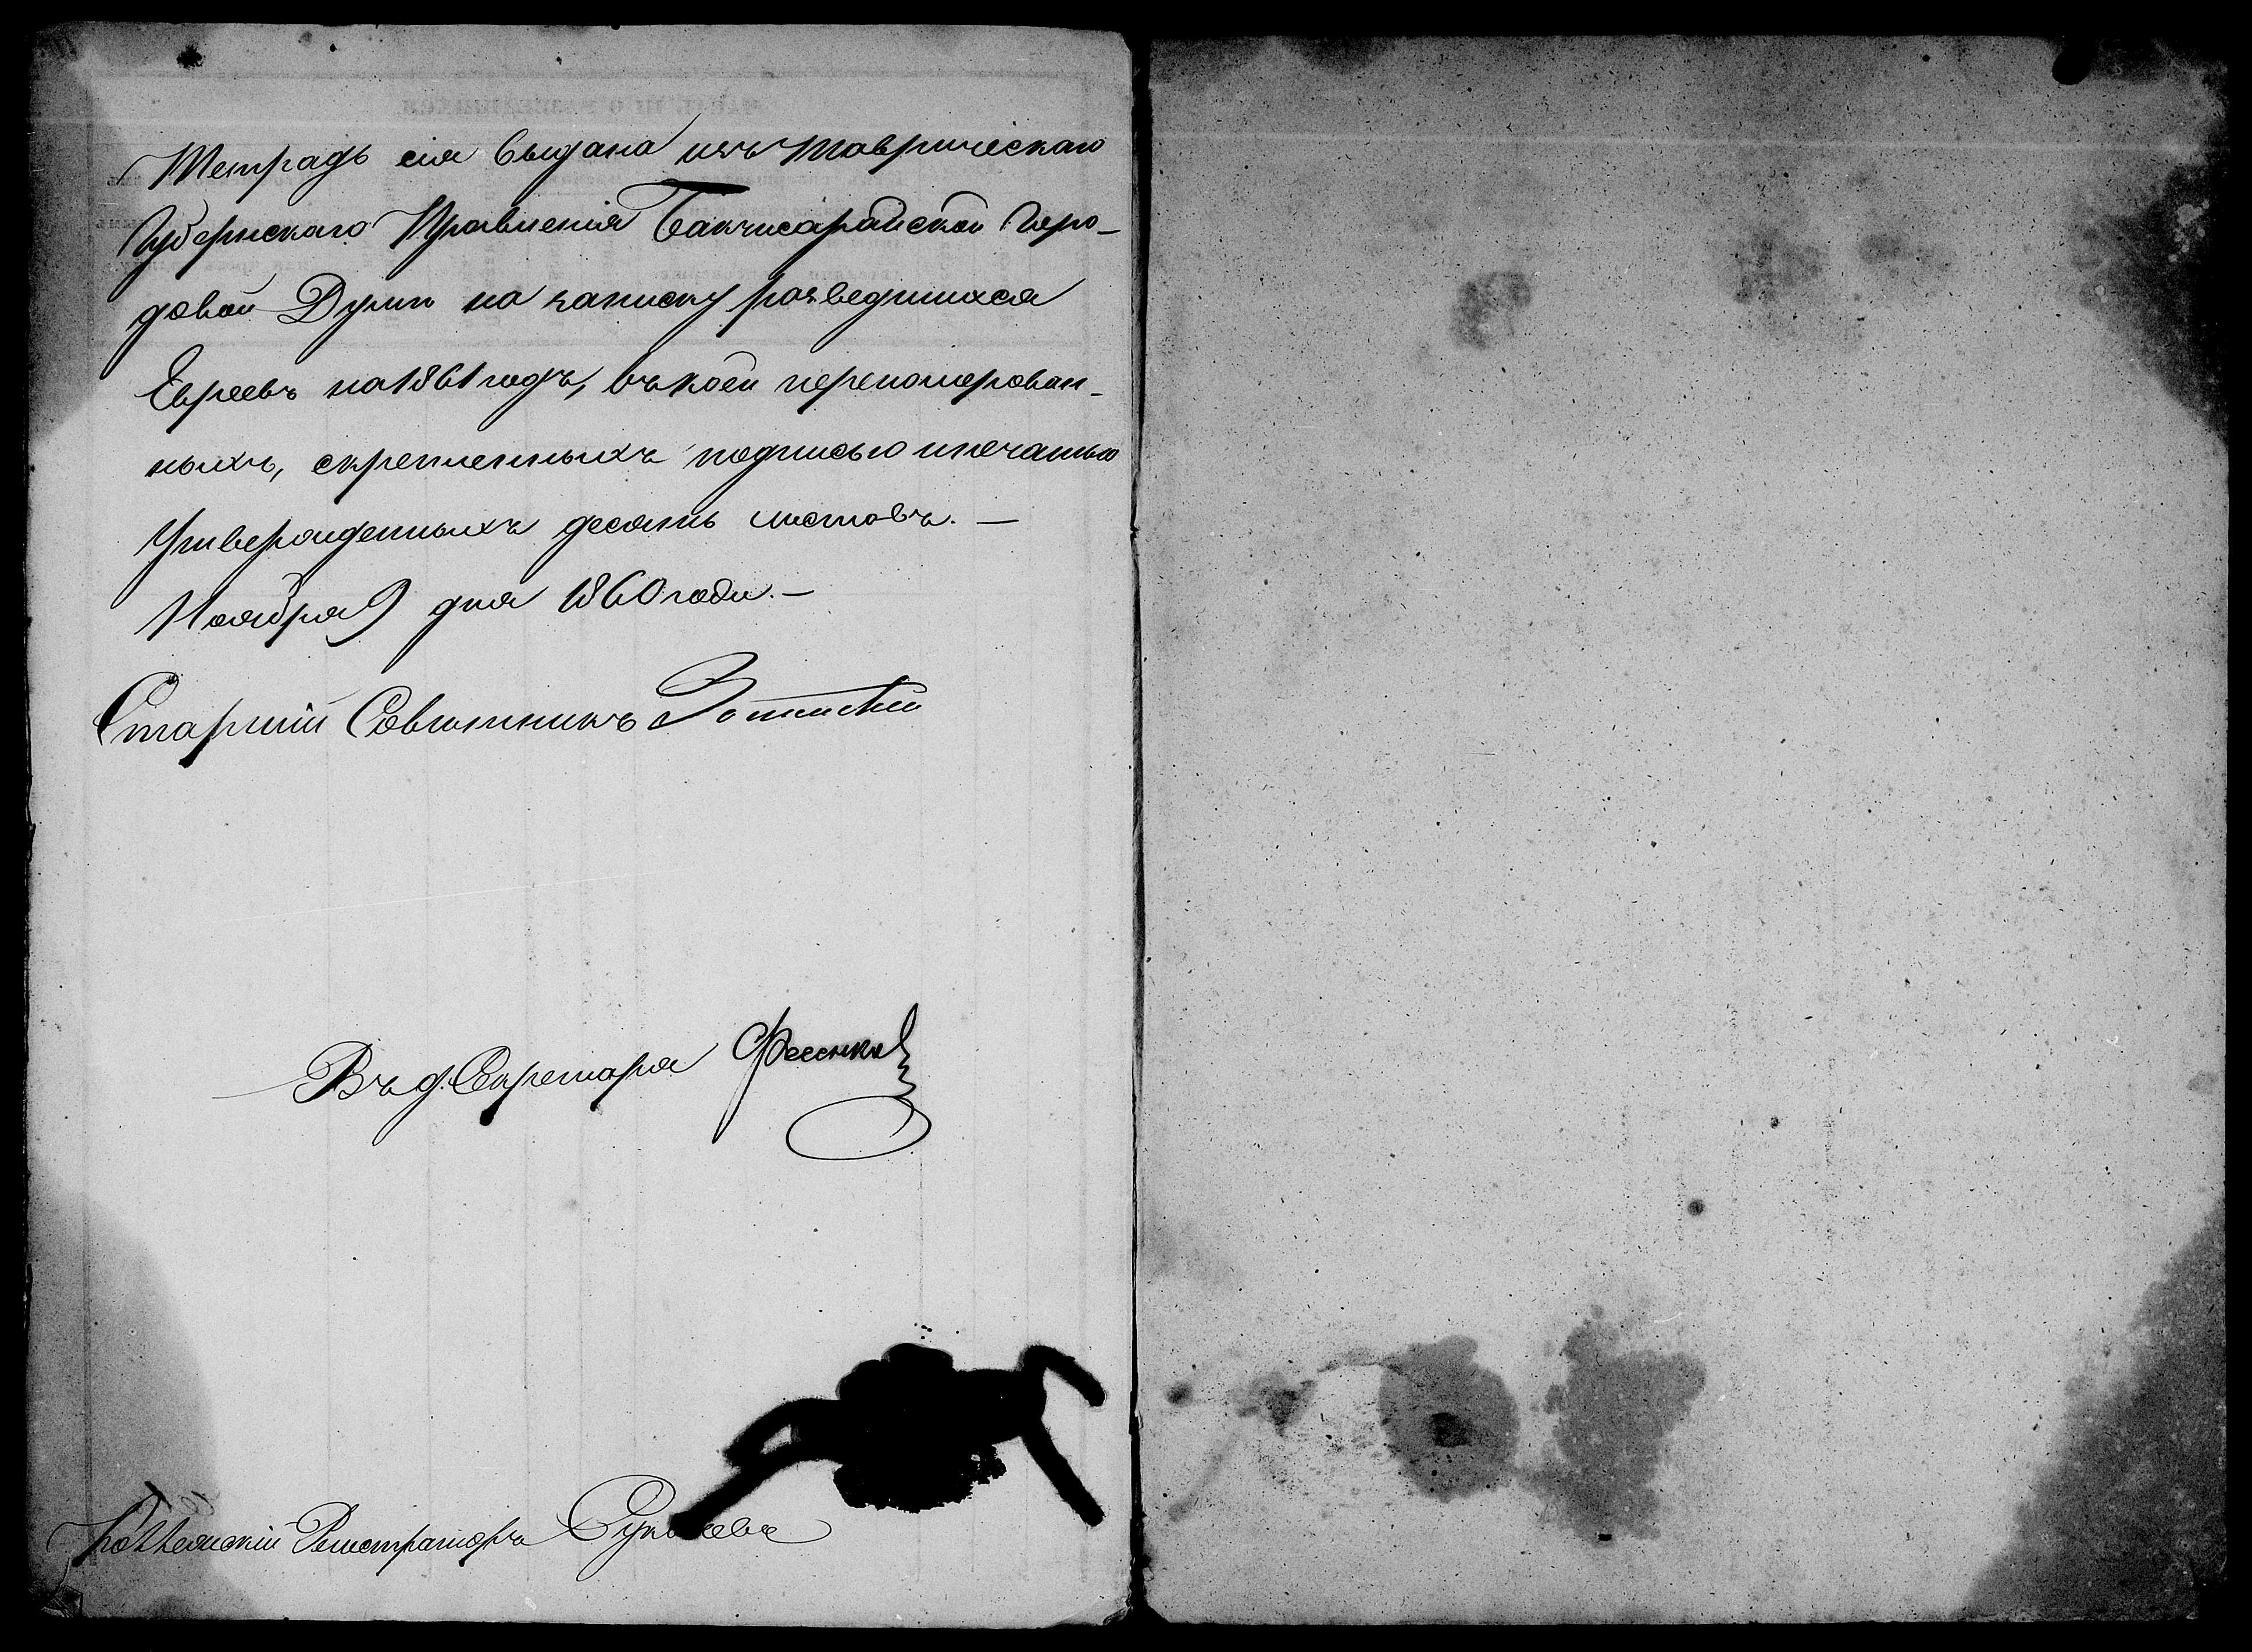 Тетрадь сія выдана изъ Таврическаго
Губернскаго Правленія Бакчисарайской Горо-
довой Думѣ на записку разведшихся
Евреевъ на 1861 годъ, въ коей перенумерован-
ныхъ, скрепленныхъ подписью и печатью
Утвержденныхъ десять листовъ. —
Ноября 9 дня 1860 года. —
Старшій Совѣтникъ
Въ д. Секретаря Фесенко
Коллежскій Регистраторъ